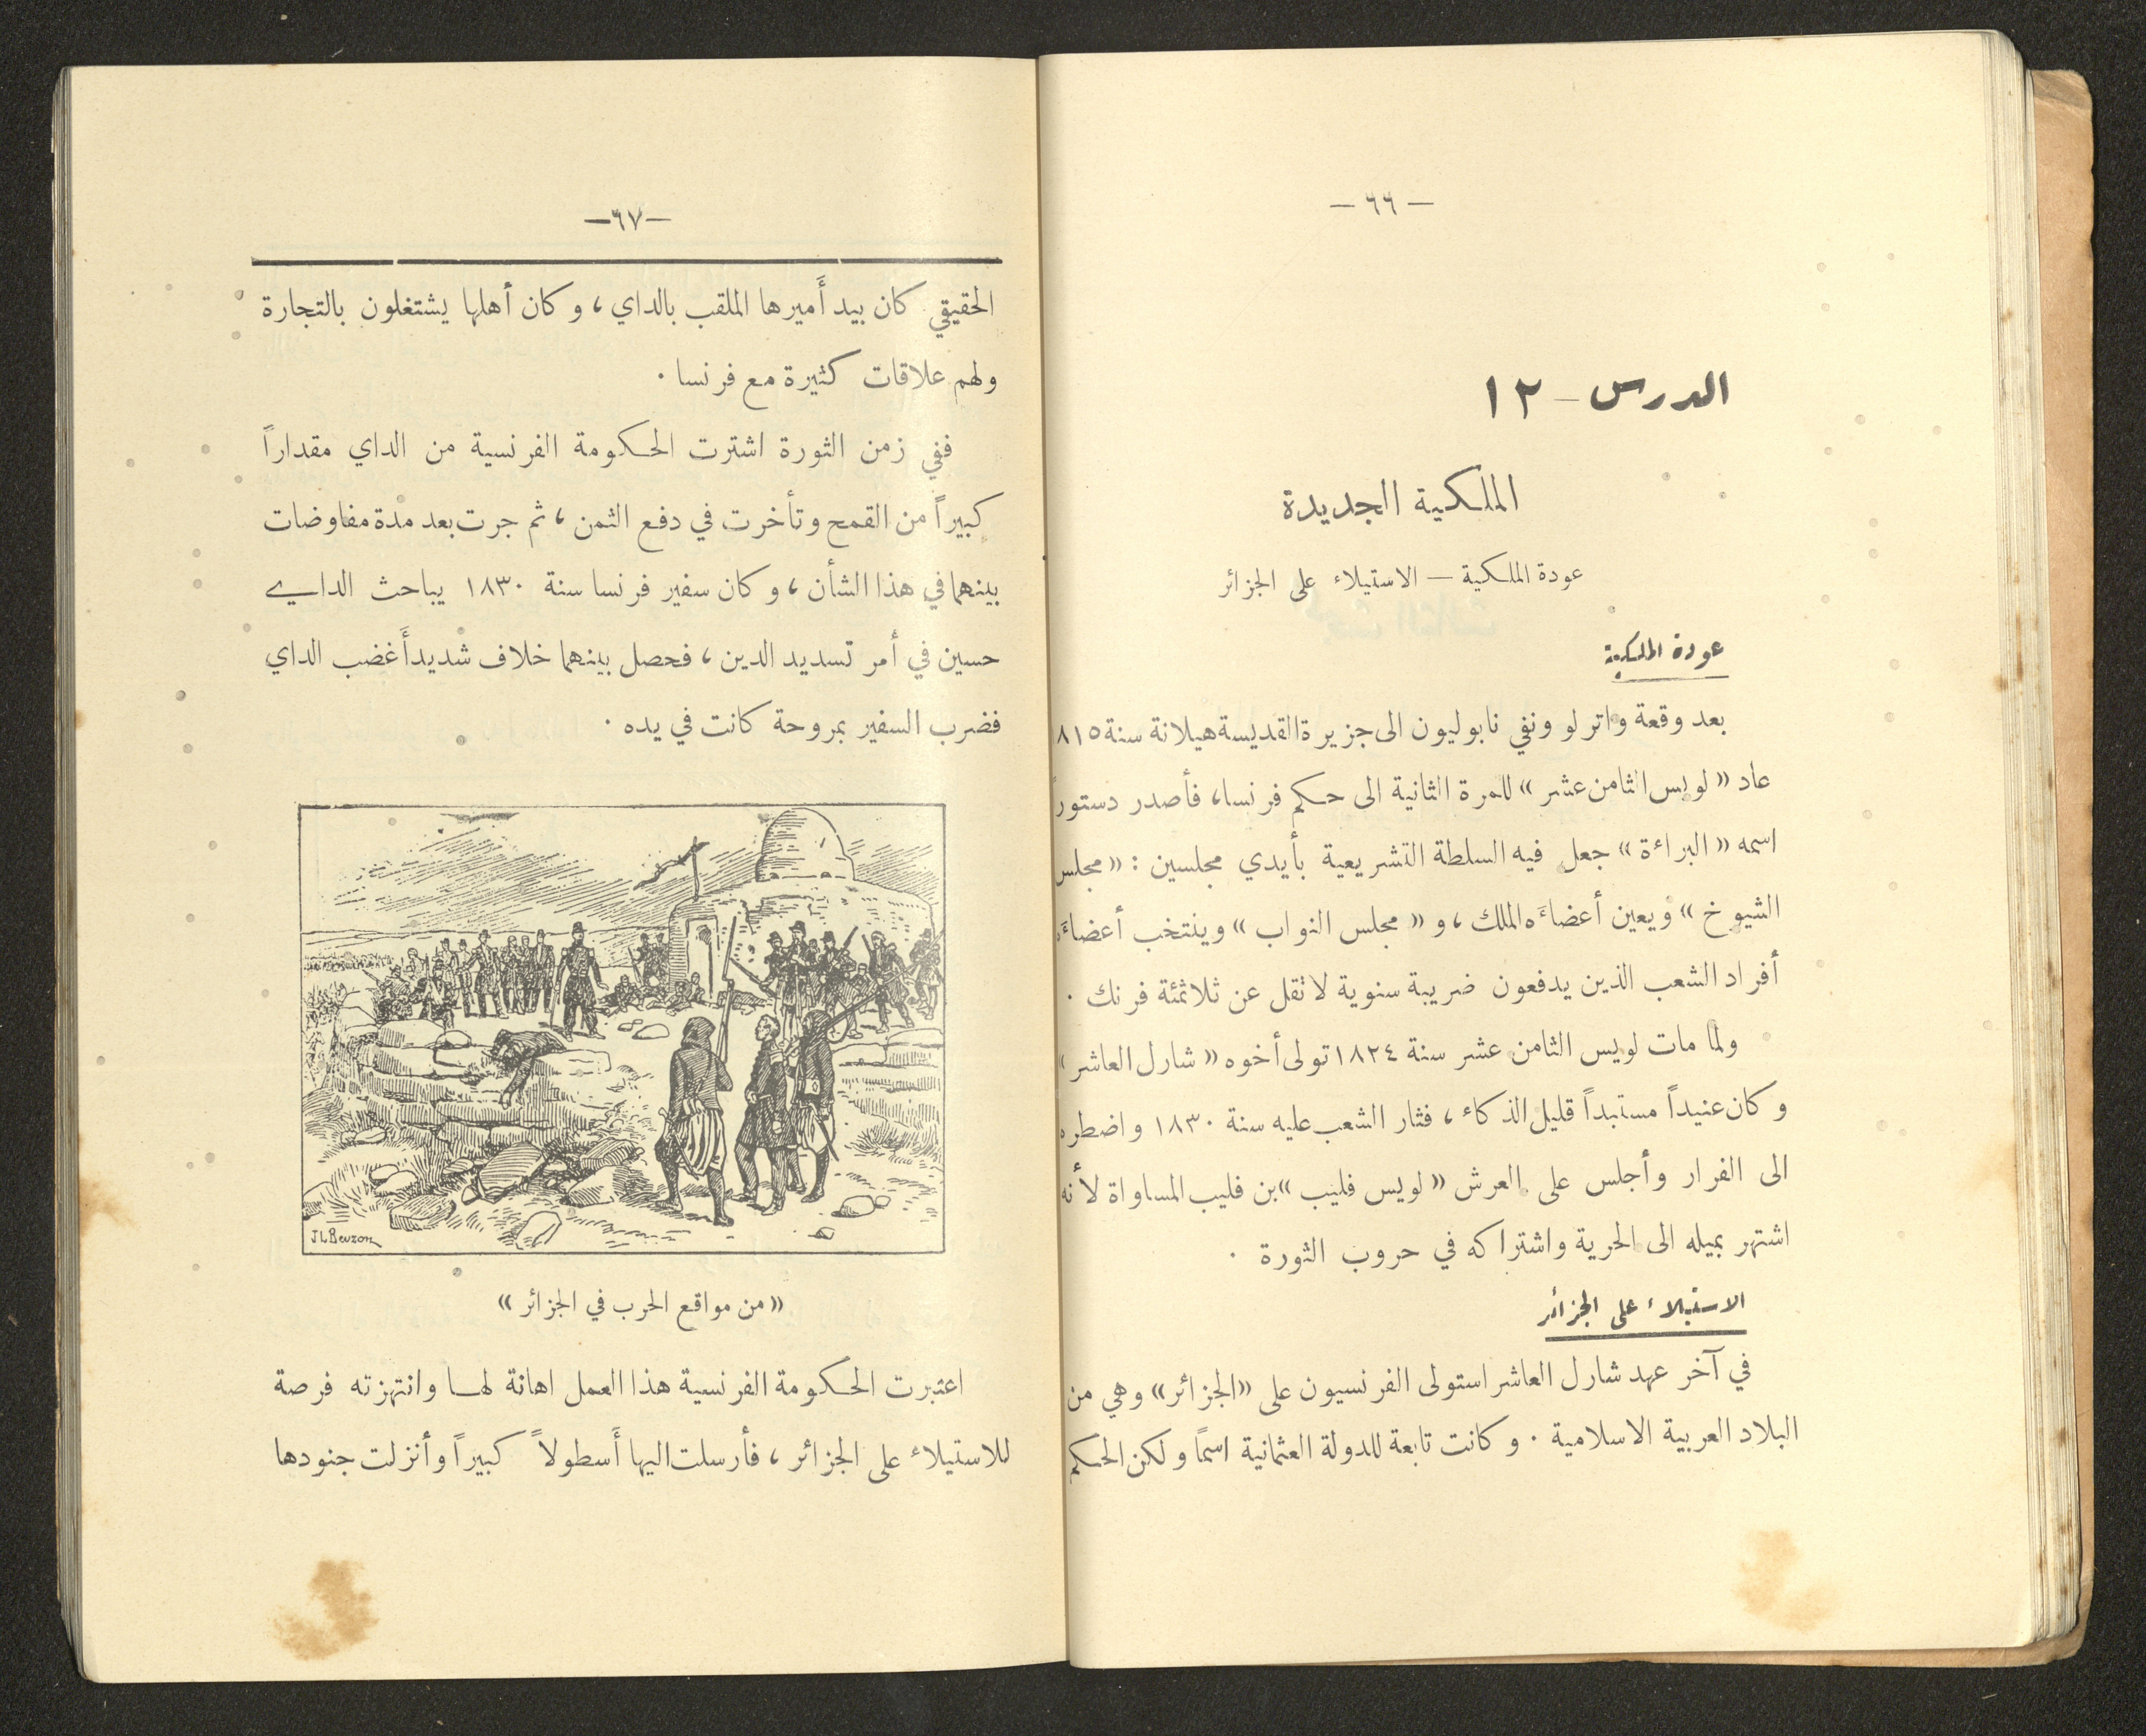 — ٦٦ —
الدرس – ١٢
الملكية الجديدة
عودة الملكية — الاستيلاء على الجزائر
عودة الملكية
بعد وقعة واترلو ونفي نابوليون الى جزيرة القديسة هيلانة سنة ٨١٥
عاد « لويس الثامن عشر » للمرة الثانية الى حكم فرنسا، فأصدر دستوراً
اسمه « البراءة » جعل فيه السلطة التشريعية بأيدي مجلسين : « مجلس
الشيوخ » ويعين أعضاءَه الملك ، و « مجلس النواب » وينتخب أعضاءَه
أفراد الشعب الذين يدفعون ضريبة سنوية لا تقل عن ثلاثمئة فرنك .
ولما مات لويس الثامن عشر سنة ١٨٢٤ تولى أخوه « شارل العاشر »
وكان عنيداً مستبداً قليل الذكاء ، فثار الشعب عليه سنة ١٨٣٠ واضطره
الى الفرار وأجلس على العرش « لويس فليب » بن فليب المساواة لأنه
اشتهر بميله الى الحرية واشتراكه في حروب الثورة .
الاستيلاء على الجزائر
في آخر عهد شارل العاشر استولى الفرنسيون على «الجزائر» وهي من
البلاد العربية الاسلامية . وكانت تابعة للدولة العثمانية اسماً ولكن الحكم
—٦٧—
الحقيقي كان بيد أَميرها الملقب بالداي ، وكان أهلها يشتغلون بالتجارة
ولهم علاقات كثيرة مع فرنسا .
ففي زمن الثورة اشترت الحكومة الفرنسية من الداي مقداراً
كبيراً من القمح وتأخرت في دفع الثمن ، ثم جرت بعد مدة مفاوضات
بينهما في هذا الشأن ، وكان سفير فرنسا سنة ١٨٣٠ يباحث الداي
حسين في أمر تسديد الدين ، فحصل بينهما خلاف شديد أَغضب الداي
فضرب السفير بمروحة كانت في يده .
J.L. Beuzon
« من مواقع الحرب في الجزائر »
اعتبرت الحكومة الفرنسية هذا العمل اهانة لها وانتهزته فرصة
للاستيلاء على الجزائر ، فأرسلت اليها أَسطولاً كبيراً وأنزلت جنودها